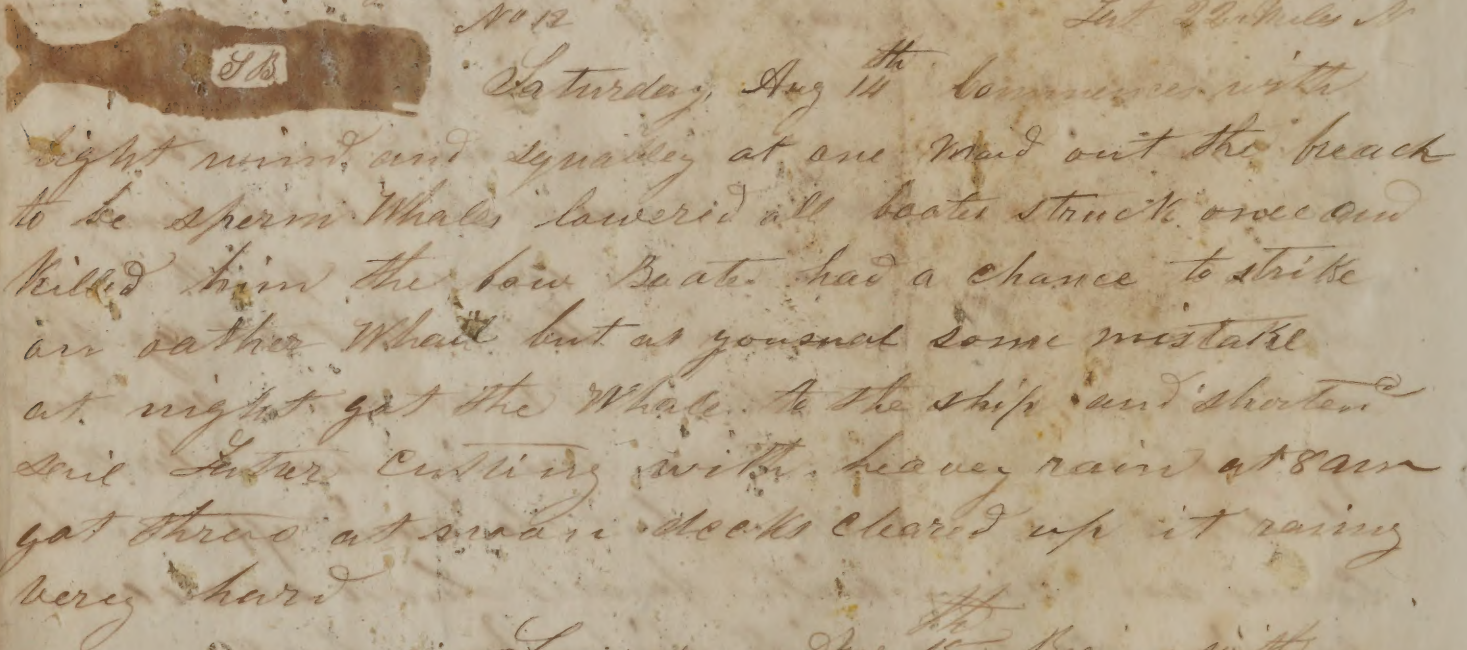 No 12 Lat 22 Miles N
S B
Saturday Aug 14th Commences with
light wind and squaley at one Maid out the breach
to be sperm Whales lowered all boats struck once and
killed him the bow Boate had a chance to strike
an oather Whale but as yousual some mistake
at night got the Whale to the ship and shortend
sail Latur Cutting with heavey rain at 8 am
got threw at noon decks cleared up it raing
verey hard
th
with